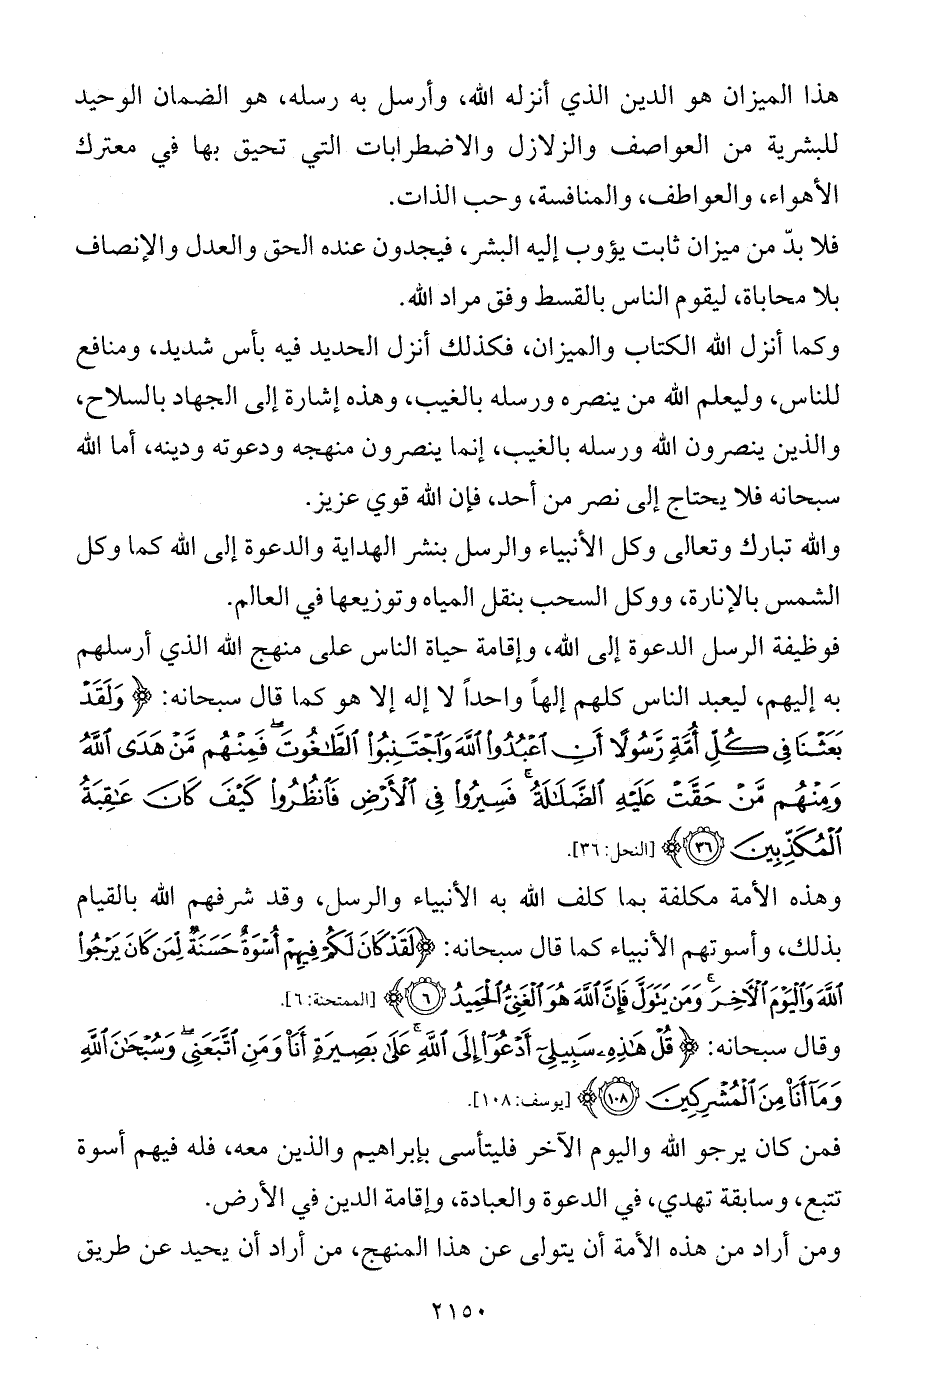 هذا الميزان هو الدين الذي أنزله الله، وأرسل به رسله، هو الضمان الوحيد
للبشرية من العواصف والزلازل والاضطرابات التي تحيق بها في معترك
الأهواء، والعواطف، والمنافسة، وحب الذات.
فلا بدّ من ميزان ثابت يؤوب إليه البشر، فيجدون عنده الحق والعدل والإنصاف
بلا محاباة، ليقوم الناس بالقسط وفق مراد الله.
وكما أنزل الله الكتاب والميزان، فكذلك أنزل الحديد فيه بأس شديد، ومنافع
للناس، وليعلم الله من ينصره ورسله بالغيب، وهذه إشارة إلى الجهاد بالسلاح،
والذين ينصرون الله ورسله بالغيب، إنما ينصرون منهجه ودعوته ودينه، أما الله
سبحانه فلا يحتاج إلى نصر من أحد، فإن الله قوي عزيز.
والله تبارك وتعالى وكل الأنبياء والرسل بنشر الهداية والدعوة إلى الله كما وكل
الشمس بالإنارة، ووكل السحب بنقل المياه وتوزيعها في العالم.
فوظيفة الرسل الدعوة إلى الله، وإقامة حياة الناس على منهج الله الذي أرسلهم
به إليهم، ليعبد الناس كلهم إلهاً واحداً لا إله إلا هو كما قال سبحانه: ﴿ وَلَقَدْ
بَعَثْنَا فِي كُلِّ أُمَّةٍ رَّسُولًا أَنِ اعْبُدُوا اللَّهَ وَاجْتَنِبُوا الطَّاغُوتَ ۖ فَمِنْهُم مَّنْ هَدَى اللَّهُ
وَمِنْهُم مَّنْ حَقَّتْ عَلَيْهِ الضَّلَالَةُ ۚ فَسِيرُوا فِي الْأَرْضِ فَانظُرُوا كَيْفَ كَانَ عَاقِبَةُ
الْمُكَذِّبِينَ ٣٦ ﴾ [النحل: ٣٦].
وهذه الأمة مكلفة بما كلف الله به الأنبياء والرسل، وقد شرفهم الله بالقيام
بذلك، وأسوتهم الأنبياء كما قال سبحانه: ﴿ لَقَدْ كَانَ لَكُمْ فِيهِمْ أُسْوَةٌ حَسَنَةٌ لِّمَن كَانَ يَرْجُوا
اللَّهَ وَالْيَوْمَ الْآخِرَ ۚ وَمَن يَتَوَلَّ فَإِنَّ اللَّهَ هُوَ الْغَنِيُّ الْحَمِيدُ ٦ ﴾ [الممتحنة: ٦].
وقال سبحانه: ﴿ قُلْ هَٰذِهِ سَبِيلِي أَدْعُو إِلَى اللَّهِ ۚ عَلَىٰ بَصِيرَةٍ أَنَا وَمَنِ اتَّبَعَنِي ۖ وَسُبْحَانَ اللَّهِ
وَمَا أَنَا مِنَ الْمُشْرِكِينَ ١٠٨ ﴾ [يوسف: ١٠٨].
فمن كان يرجو الله واليوم الآخر فليتأسى بإبراهيم والذين معه، فله فيهم أسوة
تتبع، وسابقة تهدي، في الدعوة والعبادة، وإقامة الدين في الأرض.
ومن أراد من هذه الأمة أن يتولى عن هذا المنهج، من أراد أن يحيد عن طريق
٢١٥٠